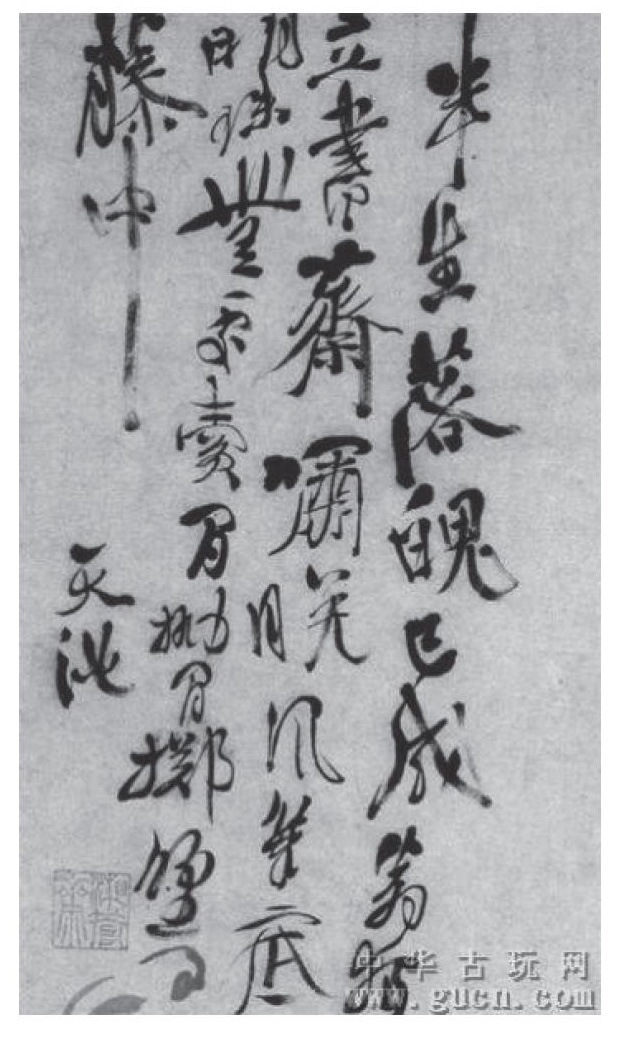 半生落魄已成翁獨
立書齋嘯晚風筆底
明珠無處賣閒拋閒擲野
藤中
天池
中华古玩网
www.gucn.com